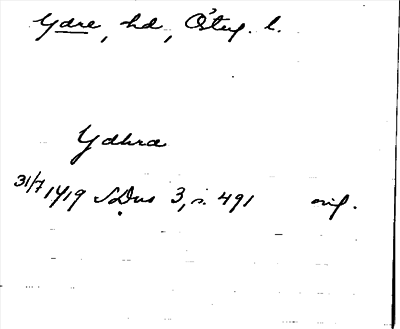 Ydre, hd, Östg. l.
Ydhra
31/7 1419 SDns 3, s. 491 orig.